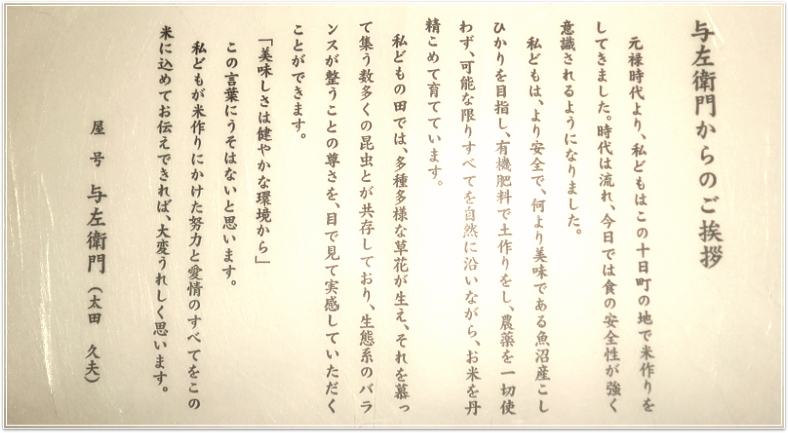 与左衛門からのご挨拶
元禄時代より、私どもはこの十日町の地で米作りを
してきました。時代は流れ、今日では食の安全性が強く
意識されるようになりました。
私どもは、より安全で、何より美味である魚沼産こし
ひかりを目指し、有機肥料で土作りをし、農薬を一切使
わず、可能な限りすべてを自然に沿いながら、お米を丹
精こめて育てています。
私どもの田では、多種多様な草花が生え、それを慕っ
て集う数多くの昆虫とが共存しており、生態系のバラ
ンスが整うことの尊さを、目で見て実感していただく
ことができます。
「美味しさは健やかな環境から」
この言葉にうそはないと思います。
私どもが米作りにかけた努力と愛情のすべてをこの
米に込めてお伝えできれば、大変うれしく思います。
屋号 与左衛門（太田 久夫）